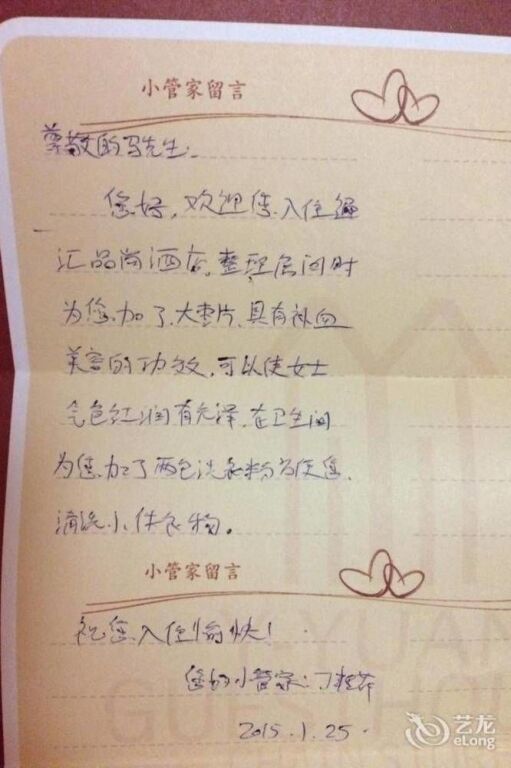 小管家留言
尊敬的马先生:
您好,欢迎您入住
汇品尚酒店,整理房间时
为您加了大枣片,具有补血
美容的功效,可以使女士
气色红润有光泽,在卫生间
为您加了两包洗衣粉方便您
清洗小件衣物。
小管家留言
祝您入住愉快!
您的小管家:丁
2015.1.25.
YUAN
GUEST HOU
艺龙
eLong